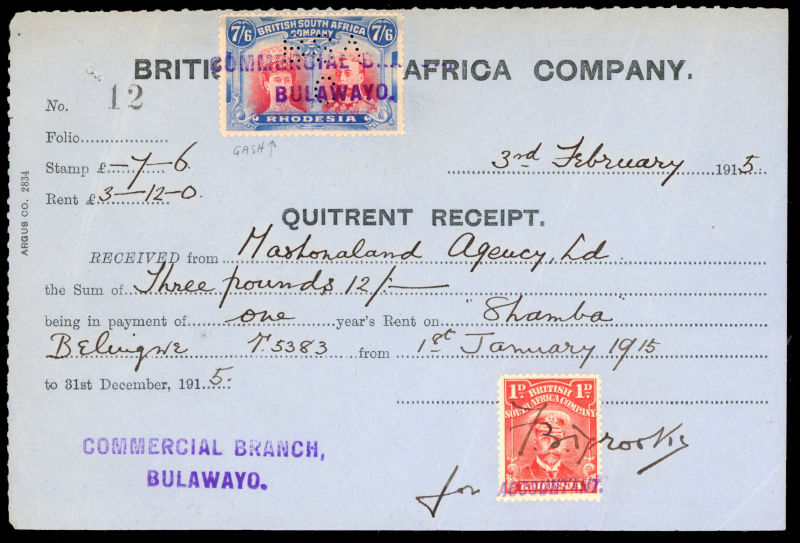 7/6 BRITISH SOUTH AFRICA COMPANY 7/6
BRITI AFRICA COMPANY.
COMMERCIAL B
BULAWAYO.
RHODESIA
No. 12
GASH↑
Folio
Stamp £ –7–6
3rd February 1915
Rent £ 3–12–0
ARGUS CO. 2834
QUITRENT RECEIPT.
RECEIVED from Mashonaland Agency, Ld
the Sum of Three pounds 12/–
being in payment of one year's Rent on "Shamba"
Belingwe T.5383 from 1st January 1915
to 31st December, 1915.
1D BRITISH 1D
SOUTH AFRICA COMPANY
RHODESIA
COMMERCIAL BRANCH,
BULAWAYO.
for ACCOUNTANT.